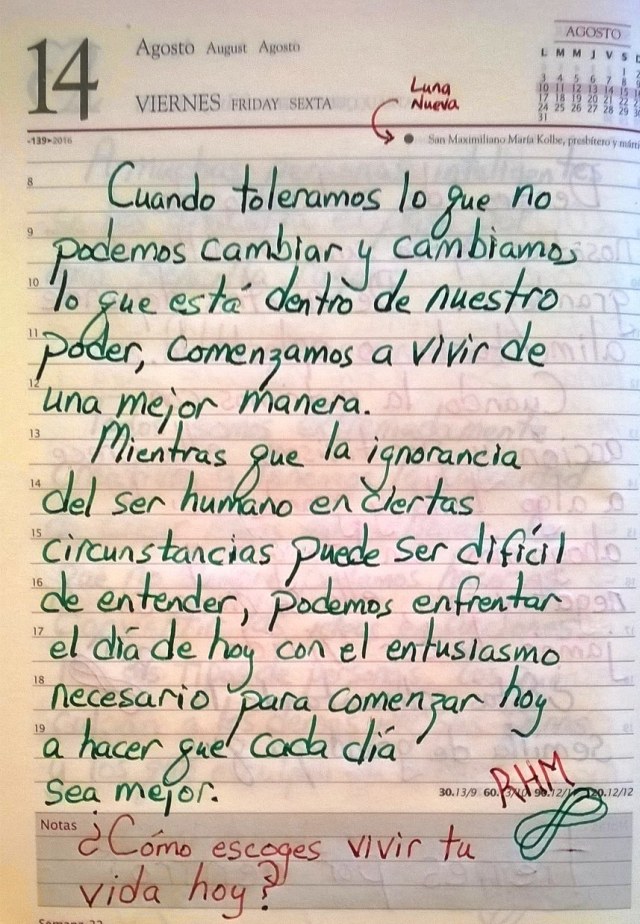 14
Agosto August Agosto
VIERNES FRIDAY SEXTA
AGOSTO
L M M J V S
3 4 5 6 7 8
10 11 12 13 14 15
17 18 19 20 21 22
24 25 26 27 28 29
31
Luna
Nueva
San Maximiliano María Kolbe, presbítero y
8 Cuando toleramos lo que no
9 podemos cambiar y cambiamos
10 lo que está dentro de nuestro
11 poder, comenzamos a vivir de
12 una mejor manera.
13 Mientras que la ignorancia
14 del ser humano en ciertas
15 circunstancias puede ser difícil
16 de entender, podemos enfrentar
17 el día de hoy con el entusiasmo
18 necesario para comenzar hoy
19 a hacer que cada día
sea mejor.
30.13/9 60. 90.12/ 120.12/12
RHM
Notas ¿Cómo escoges vivir tu
vida hoy?